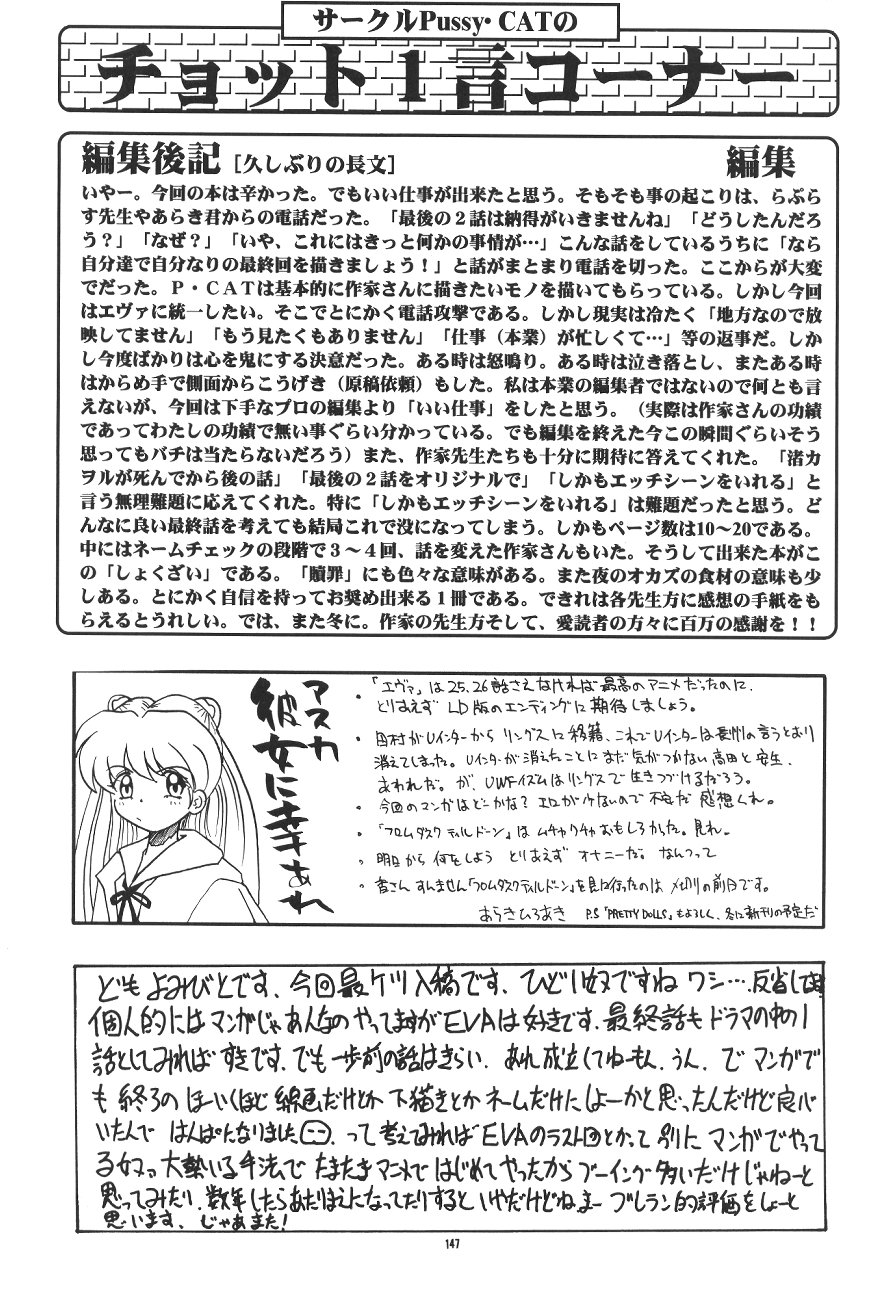 サークルPussy・CATの
チョット1言コーナー
編集後記 [久しぶりの長文] 編集
いやー。今回の本は辛かった。でもいい仕事が出来たと思う。そもそも事の起こりは、らぷら
す先生やあらき君からの電話だった。「最後の2話は納得がいきませんね」「どうしたんだろ
う?」「なぜ?」「いや、これにはきっと何かの事情が…」こんな話をしているうちに「なら
自分達で自分なりの最終回を描きましょう!」と話がまとまり電話を切った。ここからが大変
でだった。P・CATは基本的に作家さんに描きたいモノを描いてもらっている。しかし今回
はエヴァに統一したい。そこでとにかく電話攻撃である。しかし現実は冷たく「地方なので放
映してません」「もう見たくもありません」「仕事(本業)が忙しくて…」等の返事だ。しか
し今度ばかりは心を鬼にする決意だった。ある時は怒鳴り。ある時は泣き落とし、またある時
はからめ手で側面からこうげき(原稿依頼)もした。私は本業の編集者ではないので何とも言
えないが、今回は下手なプロの編集より「いい仕事」をしたと思う。(実際は作家さんの功績
であってわたしの功績で無い事ぐらい分かっている。でも編集を終えた今この瞬間ぐらいそう
思ってもバチは当たらないだろう)また、作家先生たちも十分に期待に答えてくれた。「渚カ
ヲルが死んでから後の話」「最後の2話をオリジナルで」「しかもエッチシーンをいれる」と
言う無理難題に応えてくれた。特に「しかもエッチシーンをいれる」は難題だったと思う。ど
んなに良い最終話を考えても結局これで没になってしまう。しかもページ数は10〜20である。
中にはネームチェックの段階で3〜4回、話を変えた作家さんもいた。そうして出来た本がこ
の「しょくざい」である。「贖罪」にも色々な意味がある。また夜のオカズの食材の意味も少
しある。とにかく自信を持ってお奨め出来る1冊である。できれは各先生方に感想の手紙をも
らえるとうれしい。では、また冬に。作家の先生方そして、愛読者の方々に百万の感謝を!!
アスカ
彼女に幸あれ
・「エヴァ」は25、26話さえなければ最高のアニメだったのに、
とりあえず LD版のエンディングに期待しましょう。
・田村がUインターから リングスに移籍、これでUインターは長州の言うとおり
消えてしまった。Uインターが消えたことにまだ気がつかない高田と安生、
あわれだ。が、UWFイズムはリングスで生きつづけるだろう。
・今回のマンガはどーかな? エロが少ないので不安だ 感想くれ。
・「フロムダスクティルドーン」は ムチャクチャおもしろかった。見れ。
・明日から 何をしよう とりあえず オナニーだ。なんつって
・皆さん すんません「フロムダスクティルドーン」を見に行ったのは〆切りの前日です。
あらきひろあき P.S「PRETTY DOLLS」もよろしく、冬に新刊の予定だ
ども よみびとです、今回最ケツ入稿です、ひどい奴ですね ワシ…反省してます
個人的にはマンガじゃあんなのやってますがEVAは好きです、最終話もドラマの中の1
話としてみればすきです、でも一歩前の話はきらい、あれ成立してねーもん、うん、で マンガで
も 終ろの ほーいくほど 線画だけとか 下描きとか ネームだけにしよーかと思ったんだけど良心
いたんで はんぱになりました、って 考えてみれば EVAのラスト回とかって 別に マンガでやって
る奴って 大勢いる手法で たまたまアニメで はじめてやったから ブーイング多いだけじゃねーと
思ってみたり、数年したらあたりまえになってたりすると いやだけどねまー ブレラン的評価をしよーと
思います、じゃあまた!
147